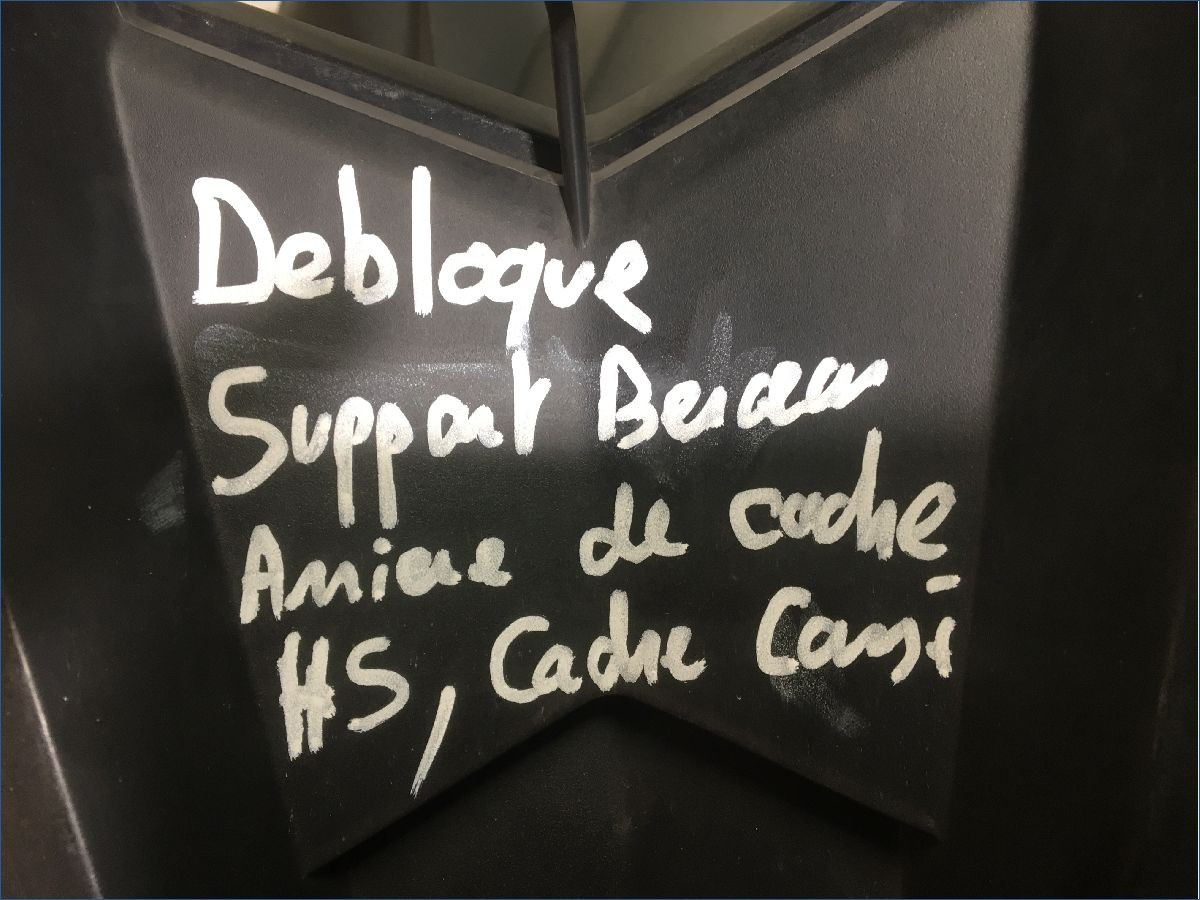 Debloque
Support Berceau
Arriere de cadre
HS, Cadre Cassé